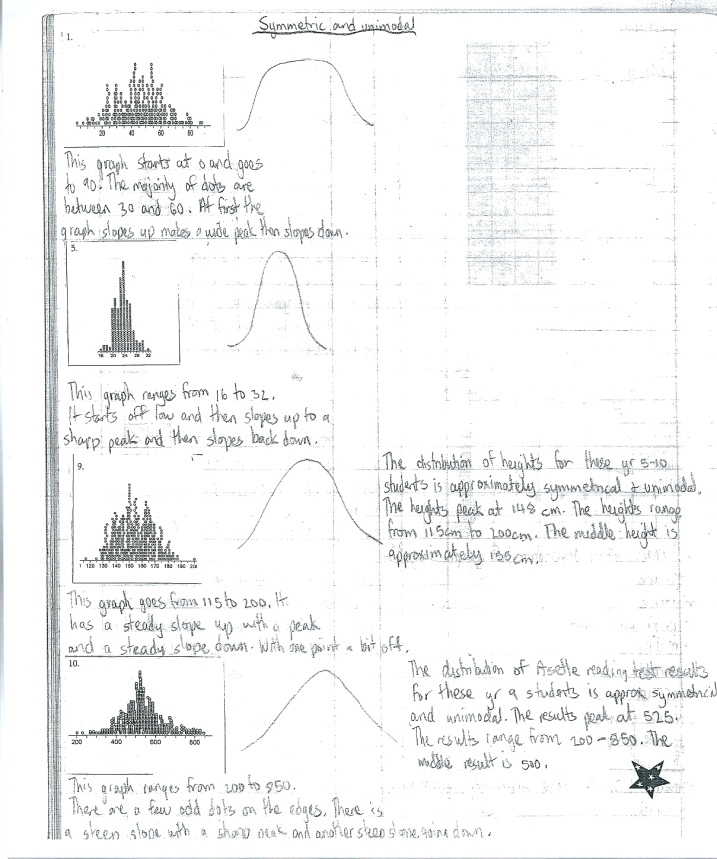 Symmetric and unimodal
1.
20 40 60 80
This graph starts at 0 and goes
to 90. The majority of dots are
between 30 and 60. At first the
graph slopes up makes a wide peak then slopes down.
5.
16 20 24 28 32
This graph ranges from 16 to 32.
It starts off low and then slopes up to a
sharp peak and then slopes back down.
9.
120 130 140 150 160 170 180 190
The distribution of heights for these yr 5-10
students is approximately symmetrical & unimodal.
The heights peak at 148 cm. The heights range
from 115cm to 200cm. The middle height is
approximately 155cm.
This graph goes from 115 to 200. It
has a steady slope up with a peak
and a steady slope down. With one point a bit off.
10.
200 400 600 800
The distribution of Asttle reading test results
for these yr 9 students is approx symmetrical
and unimodal. The results peak at 525.
The results range from 200-850. The
middle result is 500.
This graph ranges from 200 to 850.
There are a few odd dots on the edges. There is
a steep slope with a sharp peak and another steep slope going down.